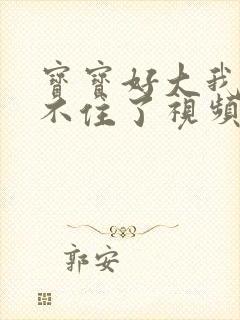 寶寶好大我
不住了視頻
郭安